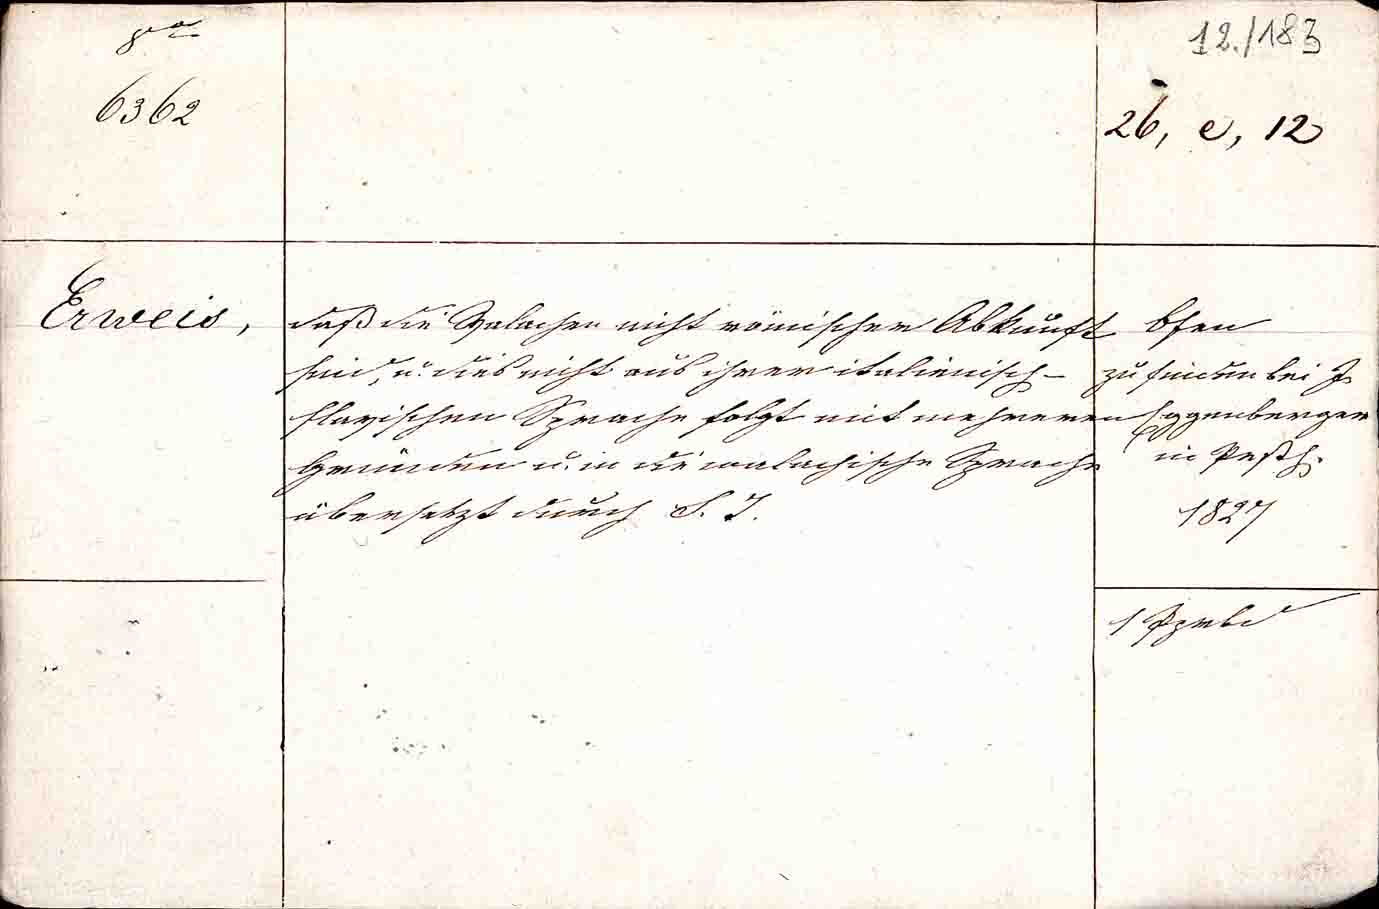 8vo
6362
12./183
26, e, 12
Erweis,
daß die Walachen nicht römischer Abkunft
sind, u. dies nicht aus ihrer italienisch-
slavischen Sprache folgt mit mehreren
Gründen u. in die walachische Sprache
übersetzt durch S. T.
Ofen
zu finden bei J.
Eggenberger
in Pesth.
1827
1 Ppbd